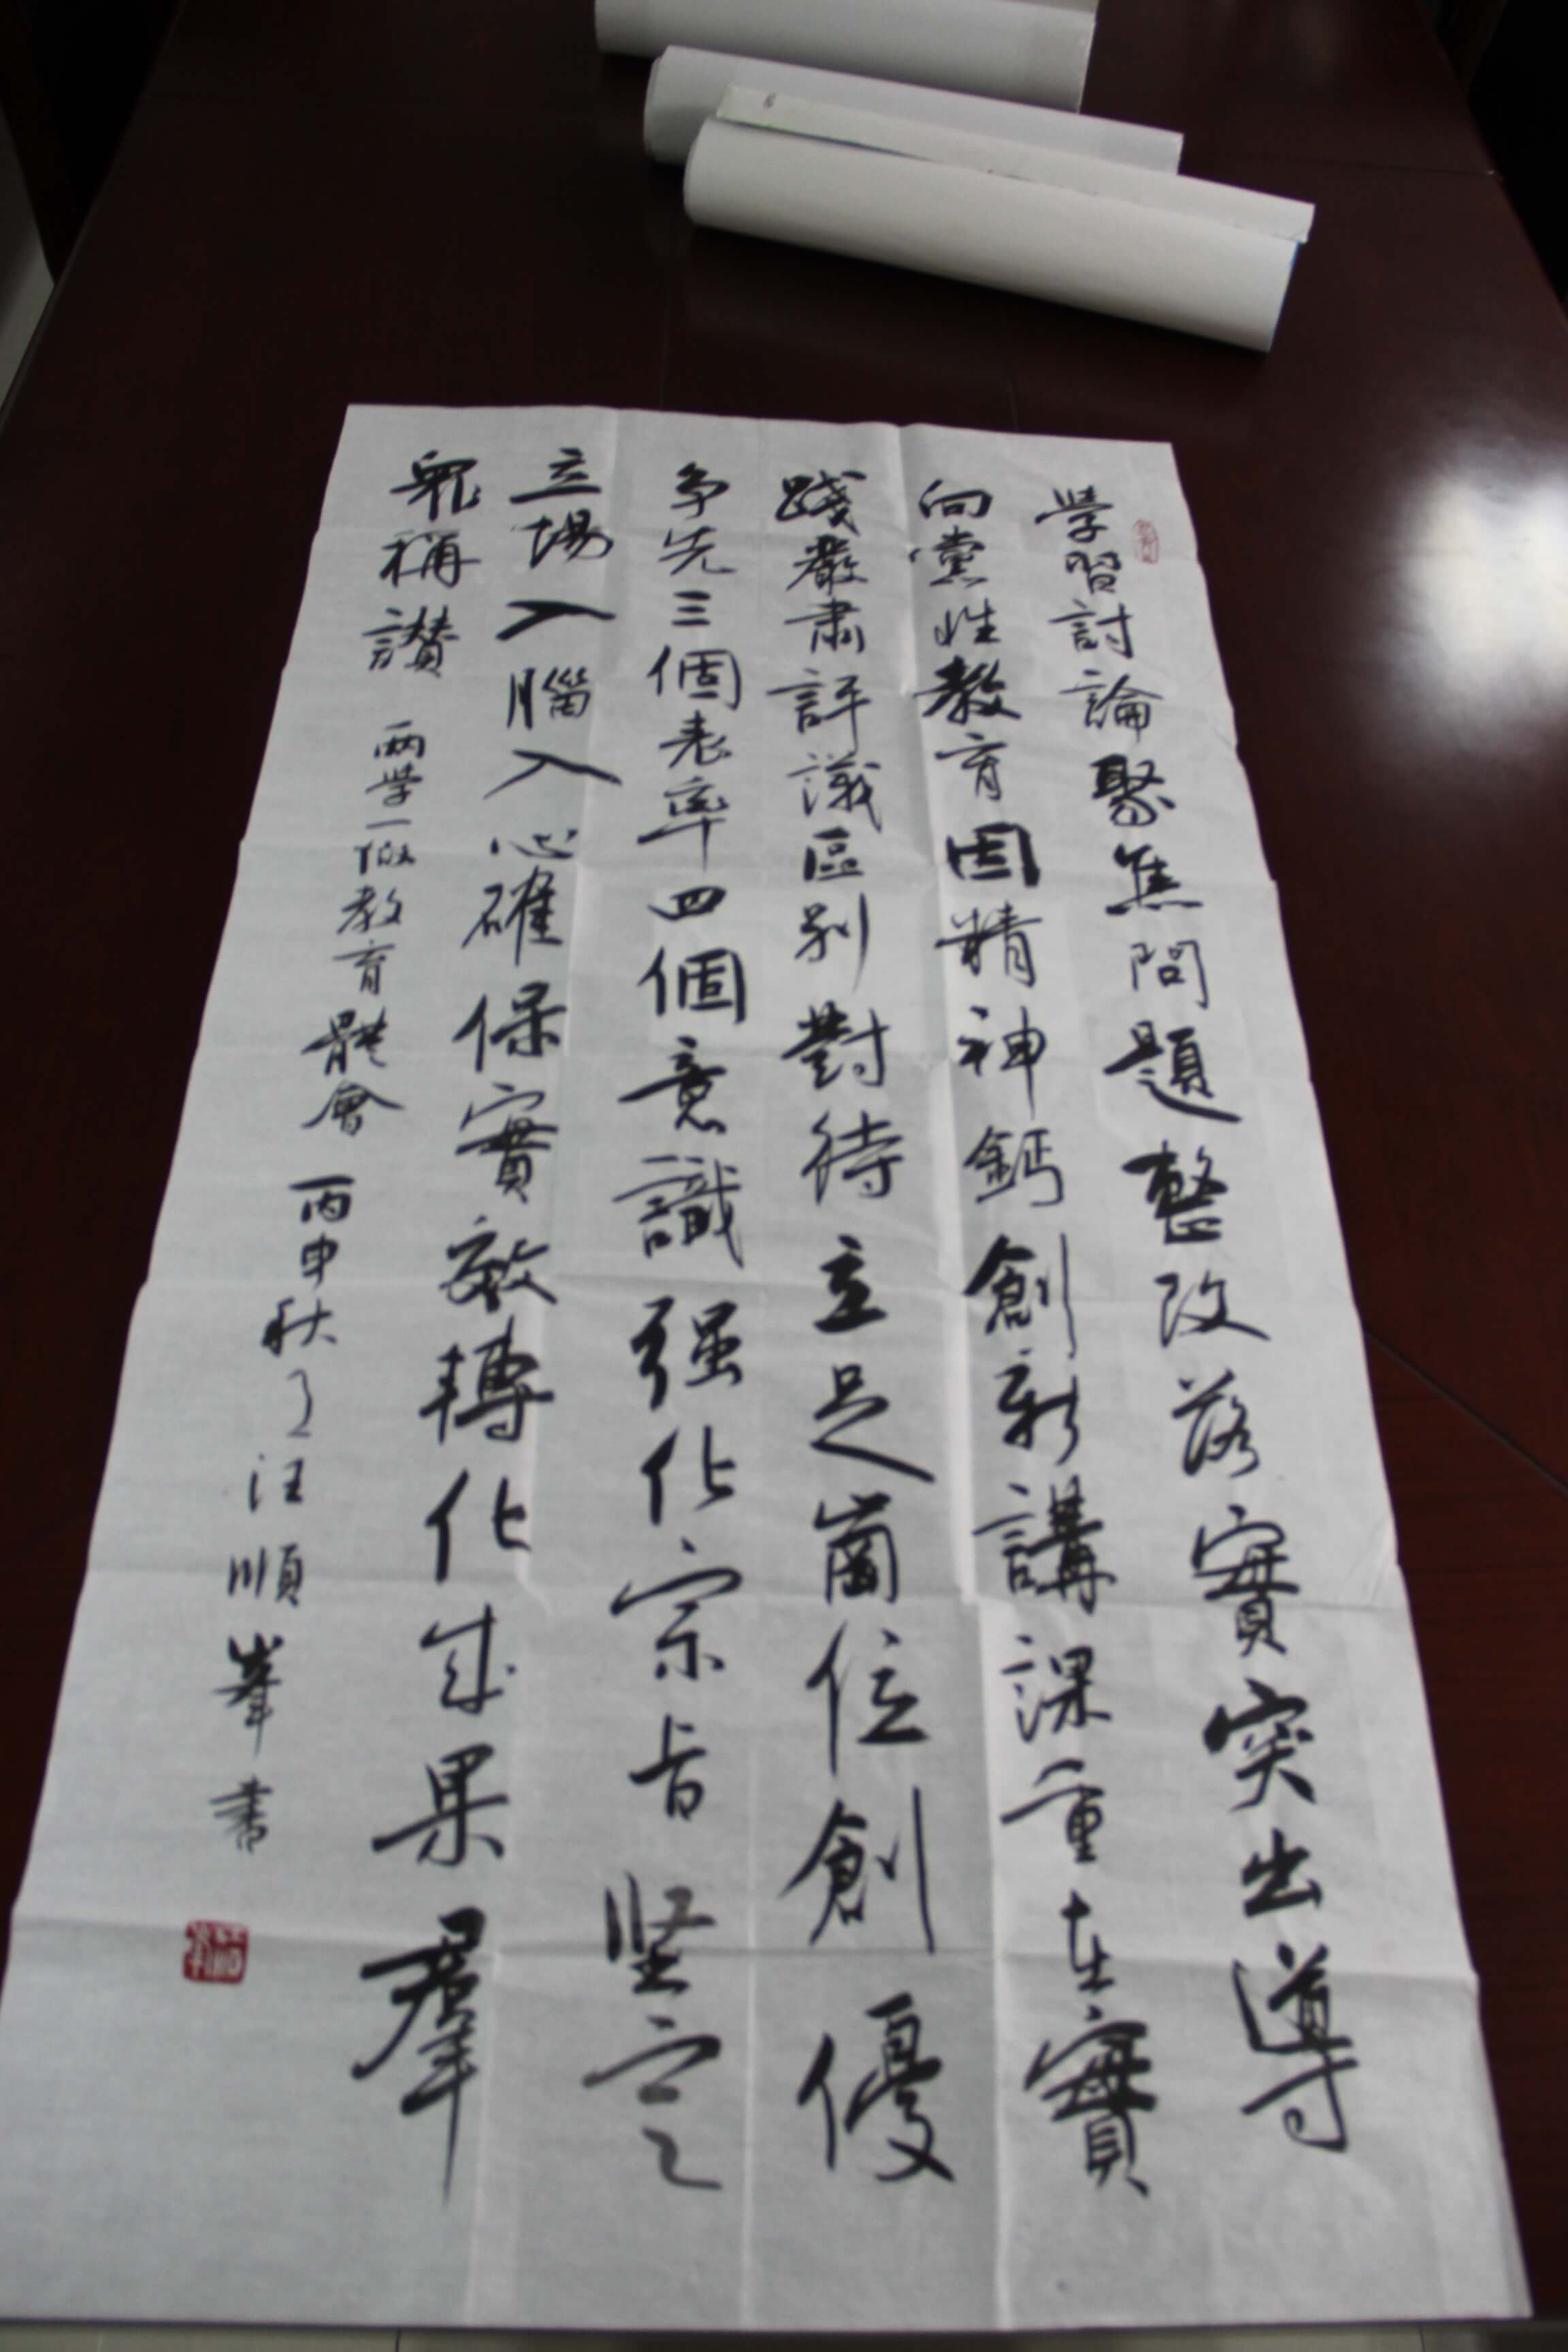 學習討論聚焦問題整改落實突出導
向黨性教育固精神鈣創新講課重在實
踐嚴肅評議區别對待立足崗位創優
争先三個表率四個意識强化宗旨坚定
立場入腦入心確保實效轉化成果羣
眾稱讚
两學一做教育體會 丙申秋月汪順峯書